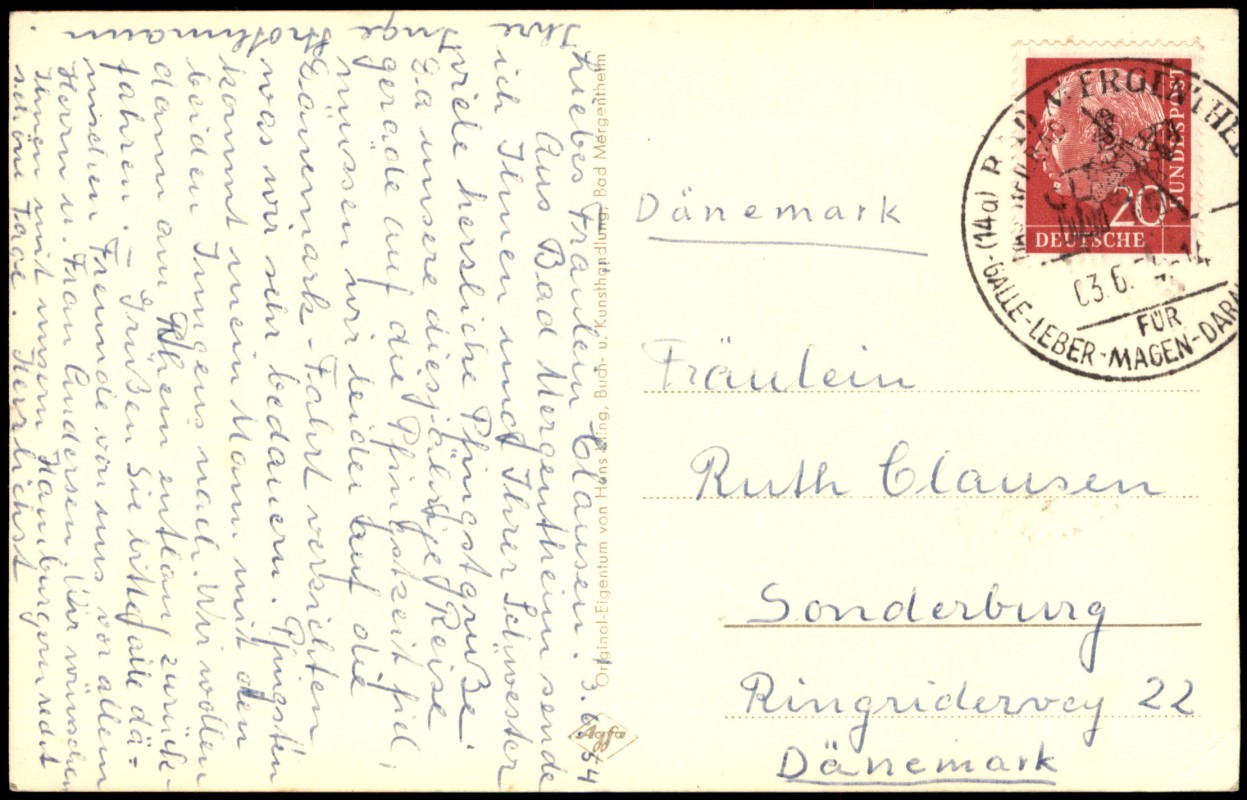 Liebes Fräulein Clausen! 3.6.54
Aus Bad Mergentheim sende
ich Ihnen und Ihrer Schwester
viele herzliche Pfingstgrüße!
Da unsere diesjährige Reise
gerade auf die Pfingstzeit fiel,
müssen wir leider auf die
Dänemark-Fahrt verzichten
was wir sehr bedauern. Pfingsten
kommt mein Mann mit den
beiden Jungens nach. Wir wollen
dann am Rhein entlan zurück-
fahren. – Grüßen Sie bitte alle dä=
nischen Freunde von uns vor allem
Herrn u. Frau Andersen! Wir wünschen
Ihnen mit unsern Hamburgern recht
schöne Tage. Herzlichst
Ihre
Inge
Original-Eigentum von Hans Kling, Buch- u. Kunsthandlung, Bad Mergentheim
Agfa
Dänemark
Fräulein
Ruth Clausen
Sonderburg
Ringridervej 22
Dänemark
20
DEUTSCHE
BUNDESPOST
(14a) BAD MERGENTHEIM
03.6.
FÜR
GALLE-LEBER-MAGEN-DARM